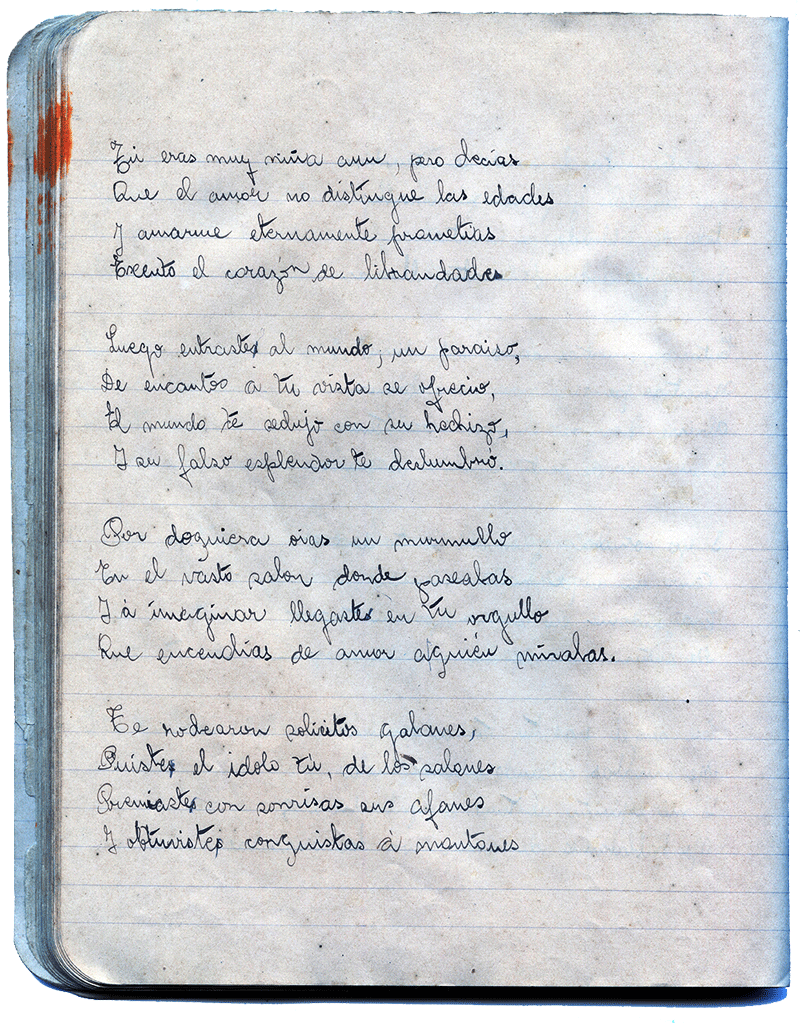 Tú eras muy niña aun, pero decias
Que el amor no distingue las edades
I amarme eternamente prometias
Exento el corazón de libiandades
Luego entrastes al mundo, un paraiso,
De encantos á tu vista se ofrecio,
El mundo te sedujo con su hechizo,
I su falso esplendor te deslumbró.
Por doquiera oias un murmullo
En el vasto salon donde paseabas
I á imaginar llegastes en tu orgullo
Que encendias de amor á quien mirabas.
Te rodearon solicitos galanes,
Fuistes el idolo tú, de los salones
Premiastes con sonrisas sus afanes
I obtuvistes conquistas á montones